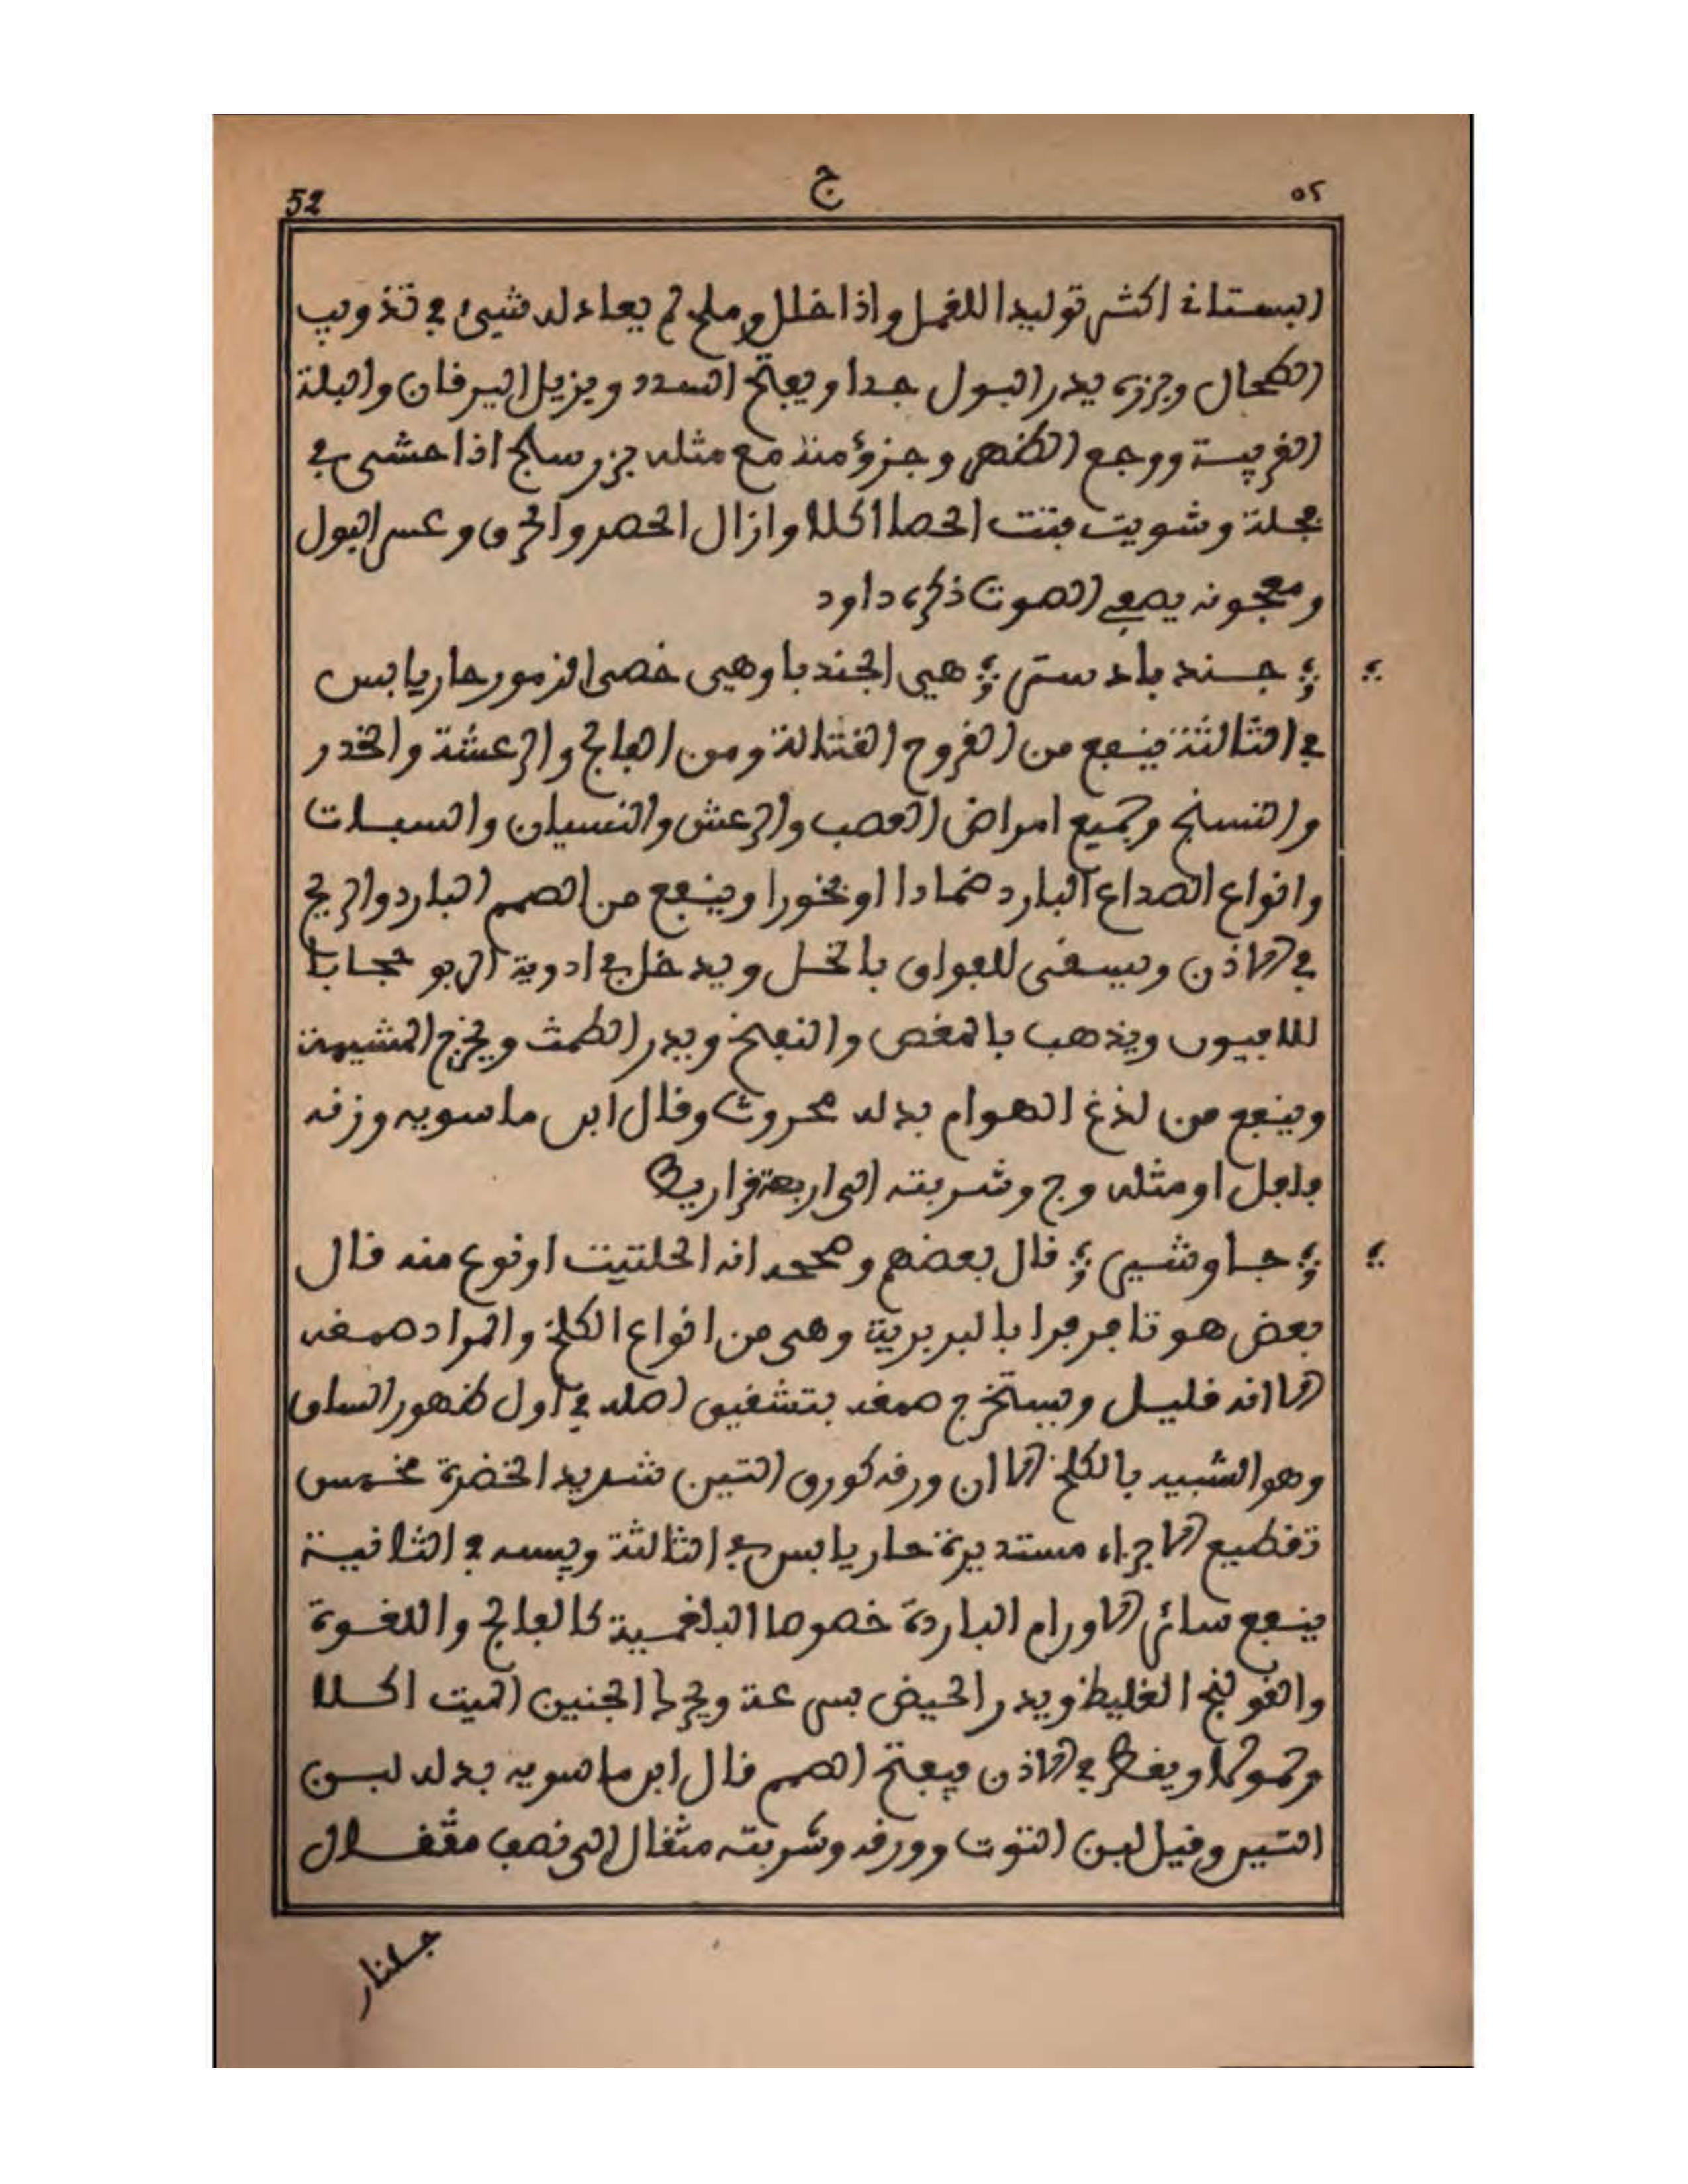 52 ج ٥٢
البستاني اكثر توليدا للقمل واذا خلل وملح لم يعادله شيئ في تذويب
الطحال وبزره يدر البول جدا ويفتح السدد ويزيل اليرقان والبلة
الغريبة ووجع الظهر وجزؤ منه مع مثله بزر سلجم اذا حشي في
فجلة وشويت فتت الحصا اكلا وازال الحصر والحرق وعسر البول
ومعجونه يصفي الصوت ذكره داود
؞ جند بادستر ؞ هي الجندبا وهي خصى القزمور حار يابس
في الثالثة ينفع من القروح القتالة ومن الفالج والرعشة والخدر
والتسنج وجميع امراض العصب والرعش والنسيان والسبات
وانواع الصداع البارد ضمادا او بخورا وينفع من الصمم البارد والريح
في الاذن ويسقى للفواق بالخل ويدخل في ادوية الربو مجابا
للافيون ويذهب بالمغص والنفخ ويدر الطمث ويخرج المشيمة
وينفع من لذغ الهوام بدله محروث وقال ابن ماسويه وزنه
فلفل او مثله وج وشربته الى اربعة قراريط
؞ جاوشير ؞ قال بعضهم وصححه انه الحلتيت او نوع منه قال
بعض هو تافرفرا بالبربرية وهي من انواع الكلخ والمراد صمغه
الا انه قليل ويستخرج صمغه بتشقيق اصله في اول ظهور الساق
وهو الشبيه بالكلخ الا ان ورقه كورق التين شديد الخضرة مخمس
تقطيع الاجزاء مستديرة حار يابس في الثالثة ويبسه في الثانية
ينفع سائر الاورام الباردة خصوصا البلغمية كالفالج واللقوة
والقولنج الغليظ ويدر الحيض بسرعة ويحرك الجنين الميت اكلا
وحمولا ويقطر في الاذن فيفتح الصمم قال ابن ماسويه بدله لبن
التين وقيل لبن التوت وورقه وشربته مثقال الى نصف مثقال
جلنار